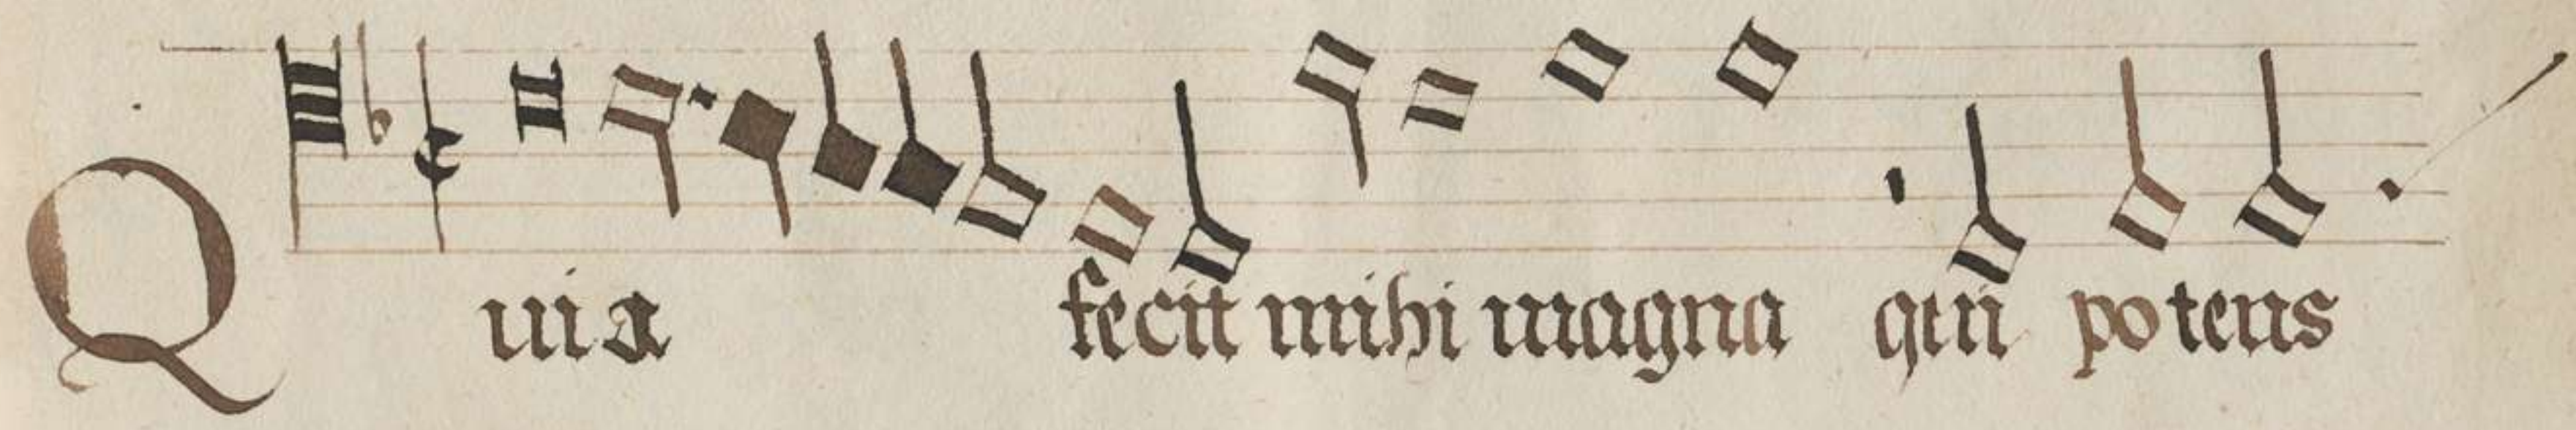 Quia fecit mihi magna qui potens